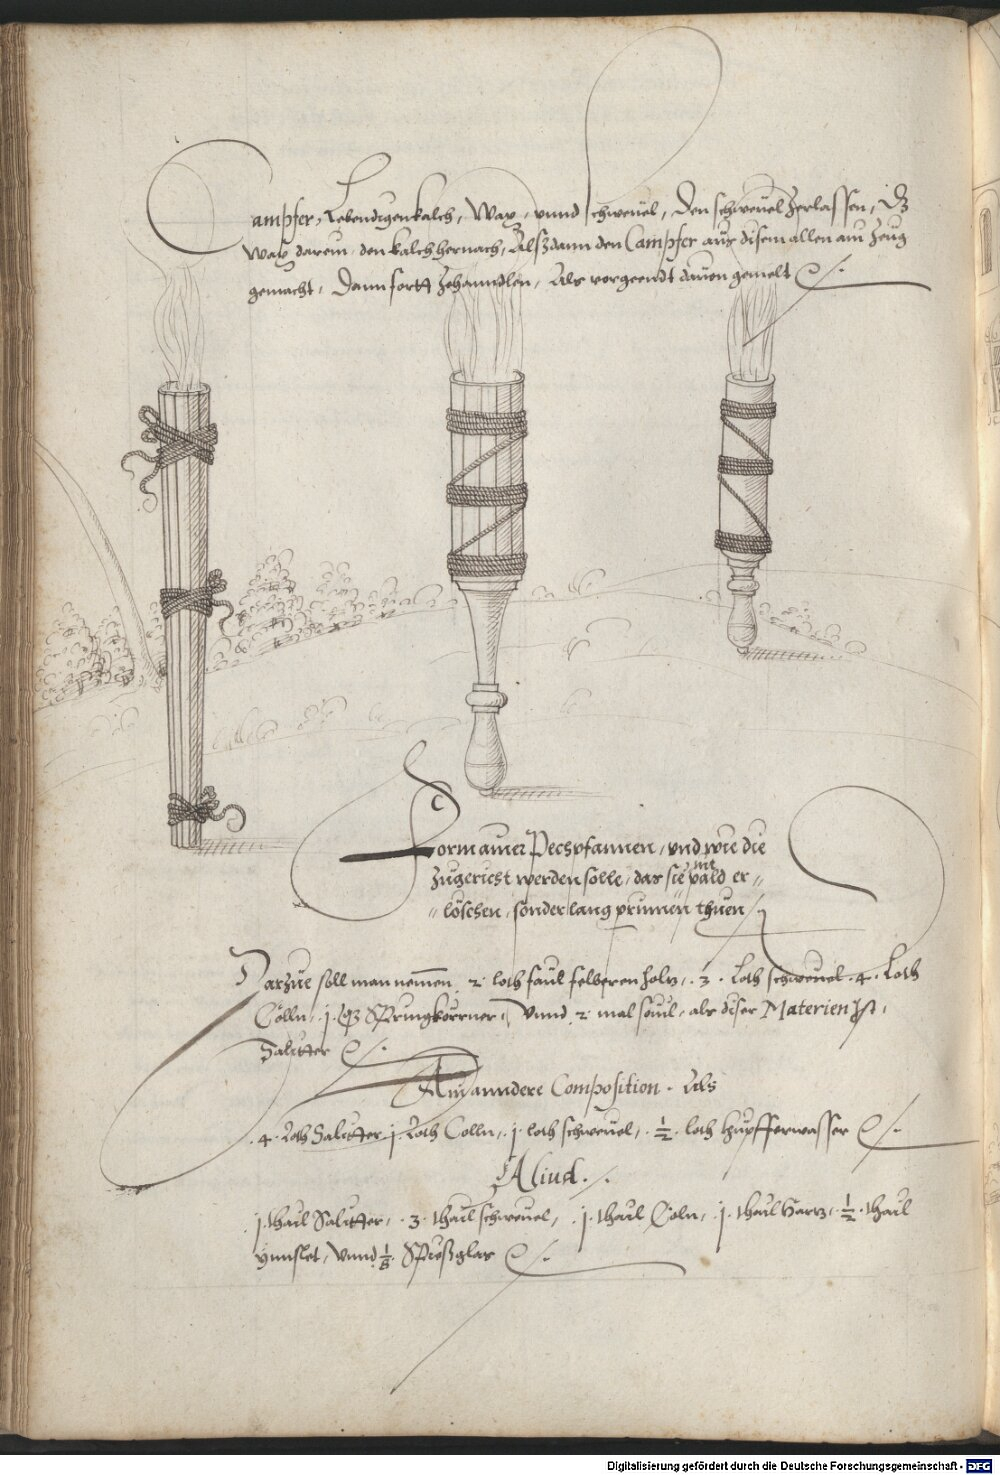 Campfer, Lebendigenkalch, Wax, vnnd schweuel, Den schweuel Zerlassen, Dz
wax darein, den kalch hernach, Alßdann den Campfer aus disem allen ain Zeug
gemacht, Dann fortt Zehanndlen, Als vorgeendt dauon gemelt
Form ainer Pechpfannen, vnd wie die
Zugericht werden solle, das sie nit pald er„
„löschen, sonder lang prinnen thuen
Darzue soll man nemen .2. loth faul felberen holz, .3. Loth schweuel .4. Loth
Cölln, .j. Sprungkörner, Vnnd .2. mal souil, als diser Materien Ist,
Salitter
Ain anndere Composition. Als
.4. Loth Salitter j. Loth Colln, .j. loth schweuel, .½. loth Kupfferwasser
Aliud.
.j. thail Salitter, .3. thail schweuel, .j. thail Cöln, .j. thail Harz, .½. thail
Vnnslet, Vnnd ⅛. Spießglas
Digitalisierung gefördert durch die Deutsche Forschungsgemeinschaft - DFG